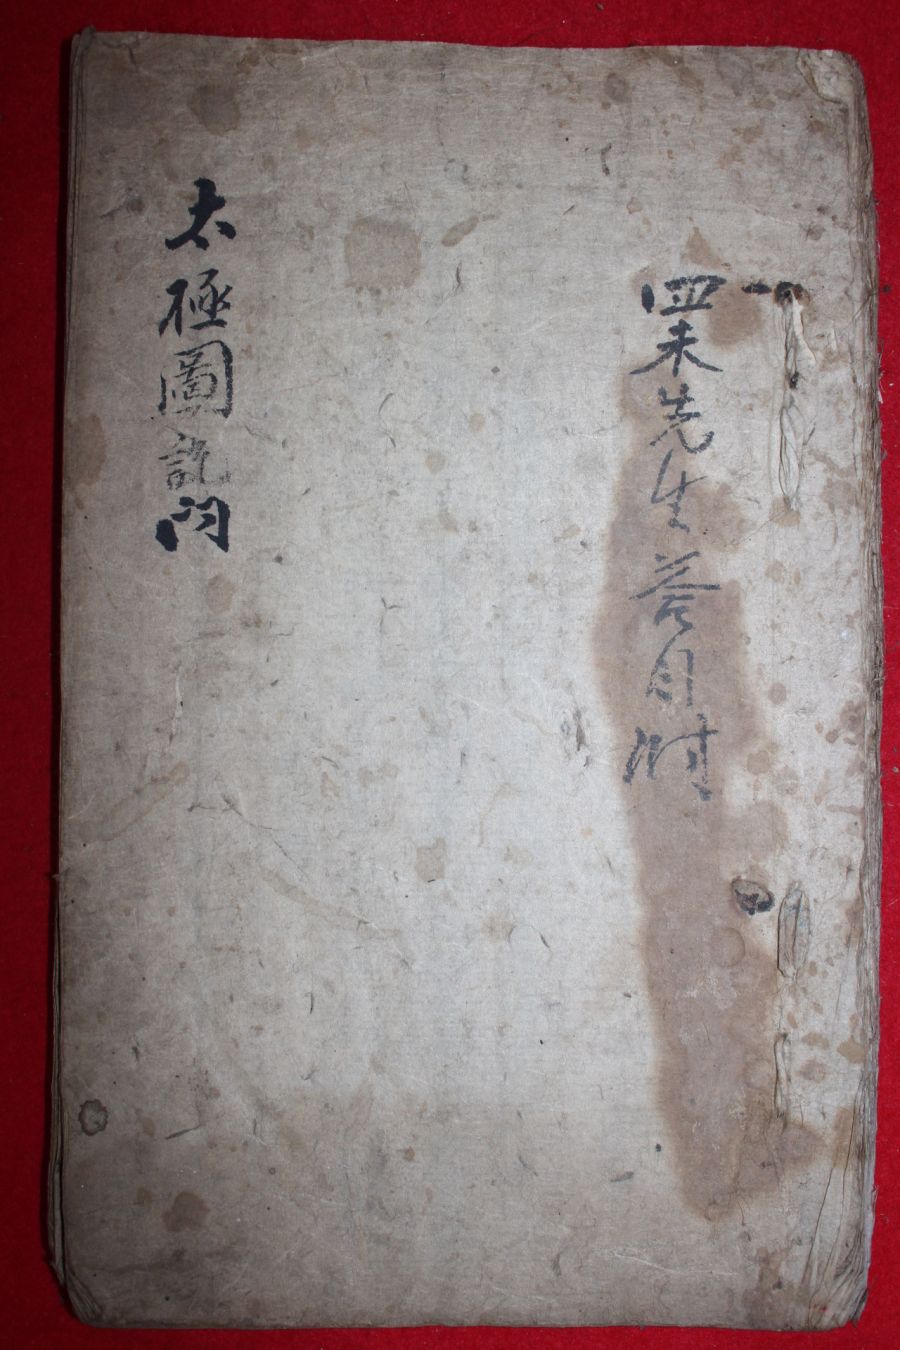 四未先生答目附
太極圖說問